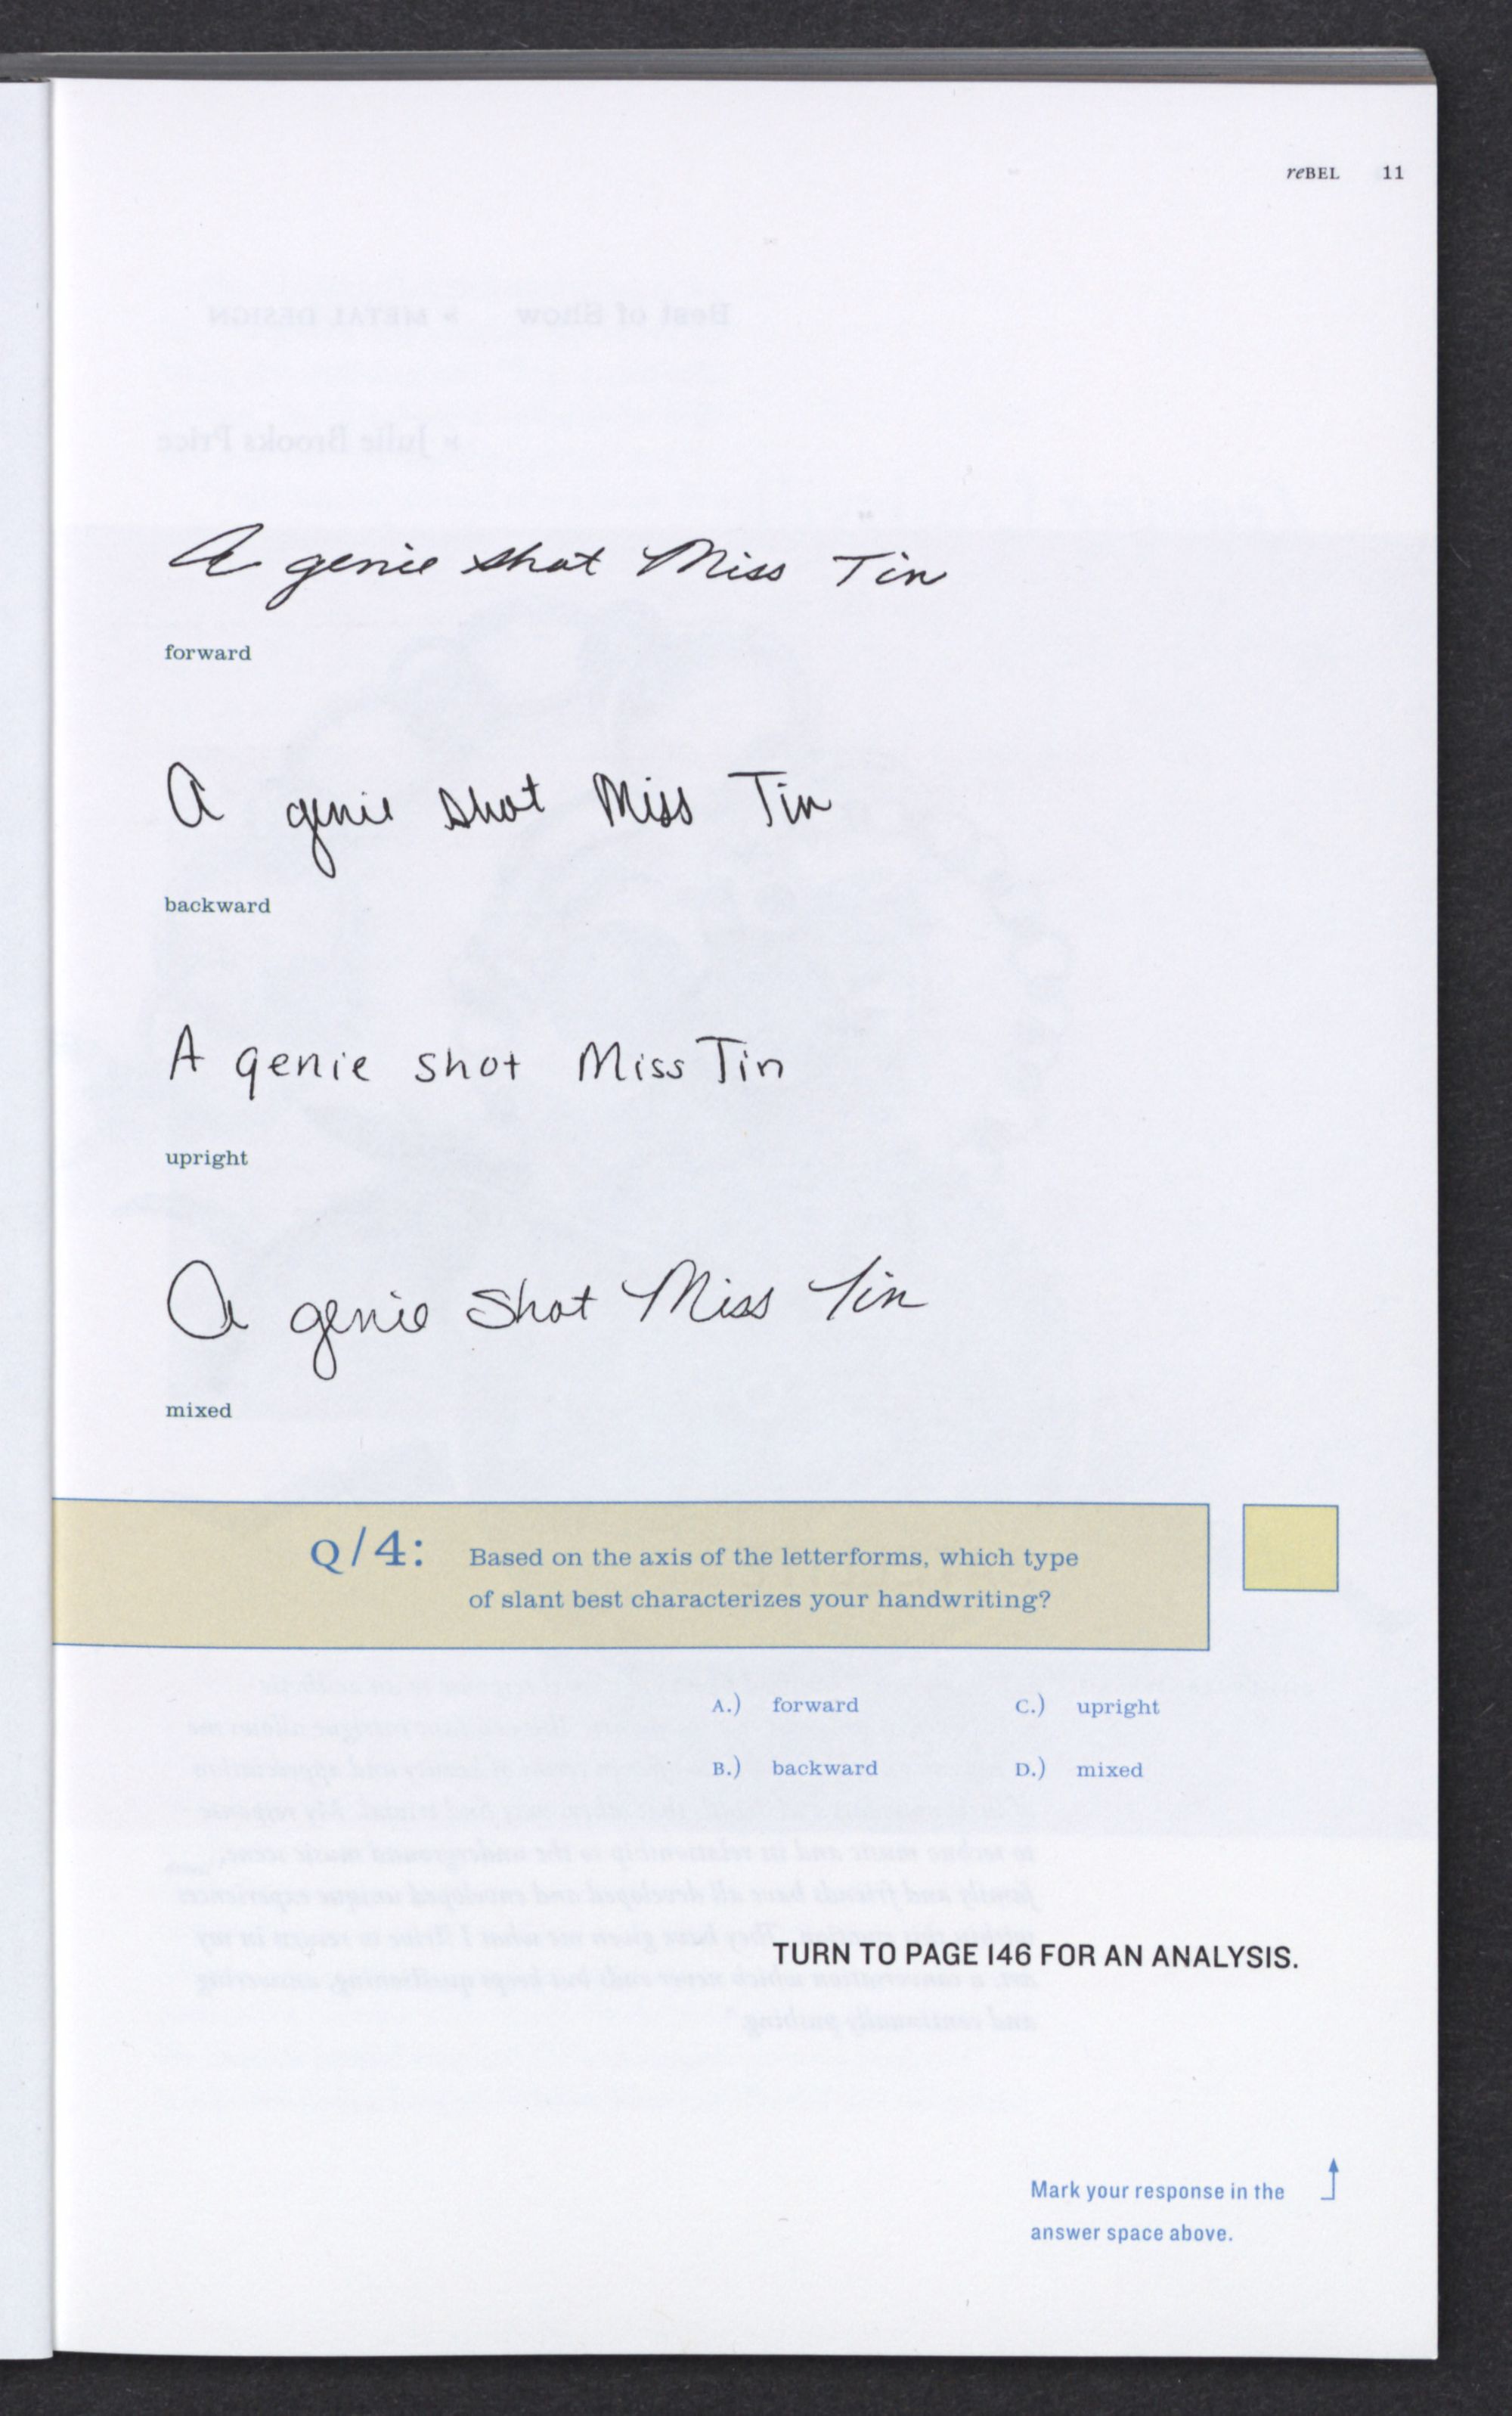 reBEL 11
A genie shot Miss Tin
forward
A genie shot Miss Tin
backward
A genie shot Miss Tin
upright
A genie shot Miss Tin
mixed
Q/4: Based on the axis of the letterforms, which type
of slant best characterizes your handwriting?
A.) forward C.) upright
B.) backward D.) mixed
TURN TO PAGE 146 FOR AN ANALYSIS.
Mark your response in the
answer space above.